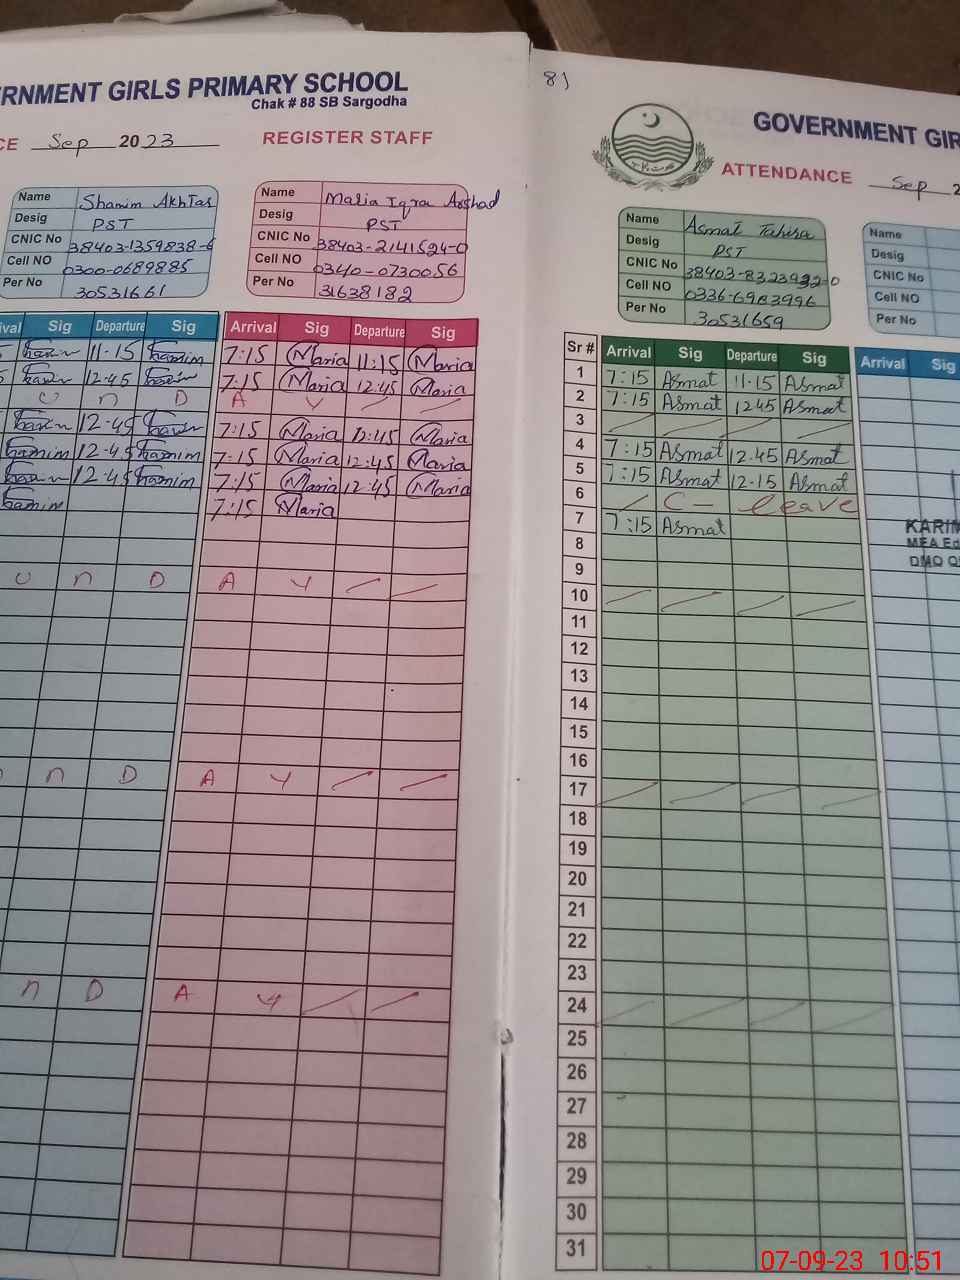 RNMENT GIRLS PRIMARY SCHOOL
Chak # 88 SB Sargodha
CE Sep 2023 REGISTER STAFF
Name Shamim Akhtar
Desig PST
CNIC No 38403-1359838-6
Cell NO 0300-0689885
Per No 30531661
Name Maria Iqra Arshad
Desig PST
CNIC No 38403-2141524-0
Cell NO 0340-0730056
Per No 31638182
ival Sig Departure Sig Arrival Sig Departure Sig
11-15 7:15 Maria 11:15 Maria
12-45 7:15 Maria 12:45 Maria
U n D A Y
12-45 7:15 Maria 12:45 Maria
Shamim 12-45 Shamim 7:15 Maria 12:45 Maria
12-45 Shamim 7:15 Maria 12:45 Maria
Shamim 7:15 Maria
U n D A Y
n D A Y
n D A Y
81
GOVERNMENT GIR
ATTENDANCE Sep 2
Name Asmat Tahira
Desig PST
CNIC No
Cell NO 0336-6983996
Per No 30531659
Name
Desig
CNIC No
Cell NO
Per No
Sr # Arrival Sig Departure Sig Arrival Sig
1 7:15 Asmat 11-15 Asmat
2 7:15 Asmat 1245 Asmat
3
4 7:15 Asmat 12.45 Asmat
5 7:15 Asmat 12-15 Asmat
6 C- leave
7 7:15 Asmat
8
9
10
11
12
13
14
15
16
17
18
19
20
21
22
23
24
25
26
27
28
29
30
31
KARIM
MEA Ed
DMO O
07-09-23 10:51